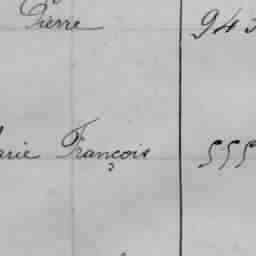 Pierre 943
arie François 555